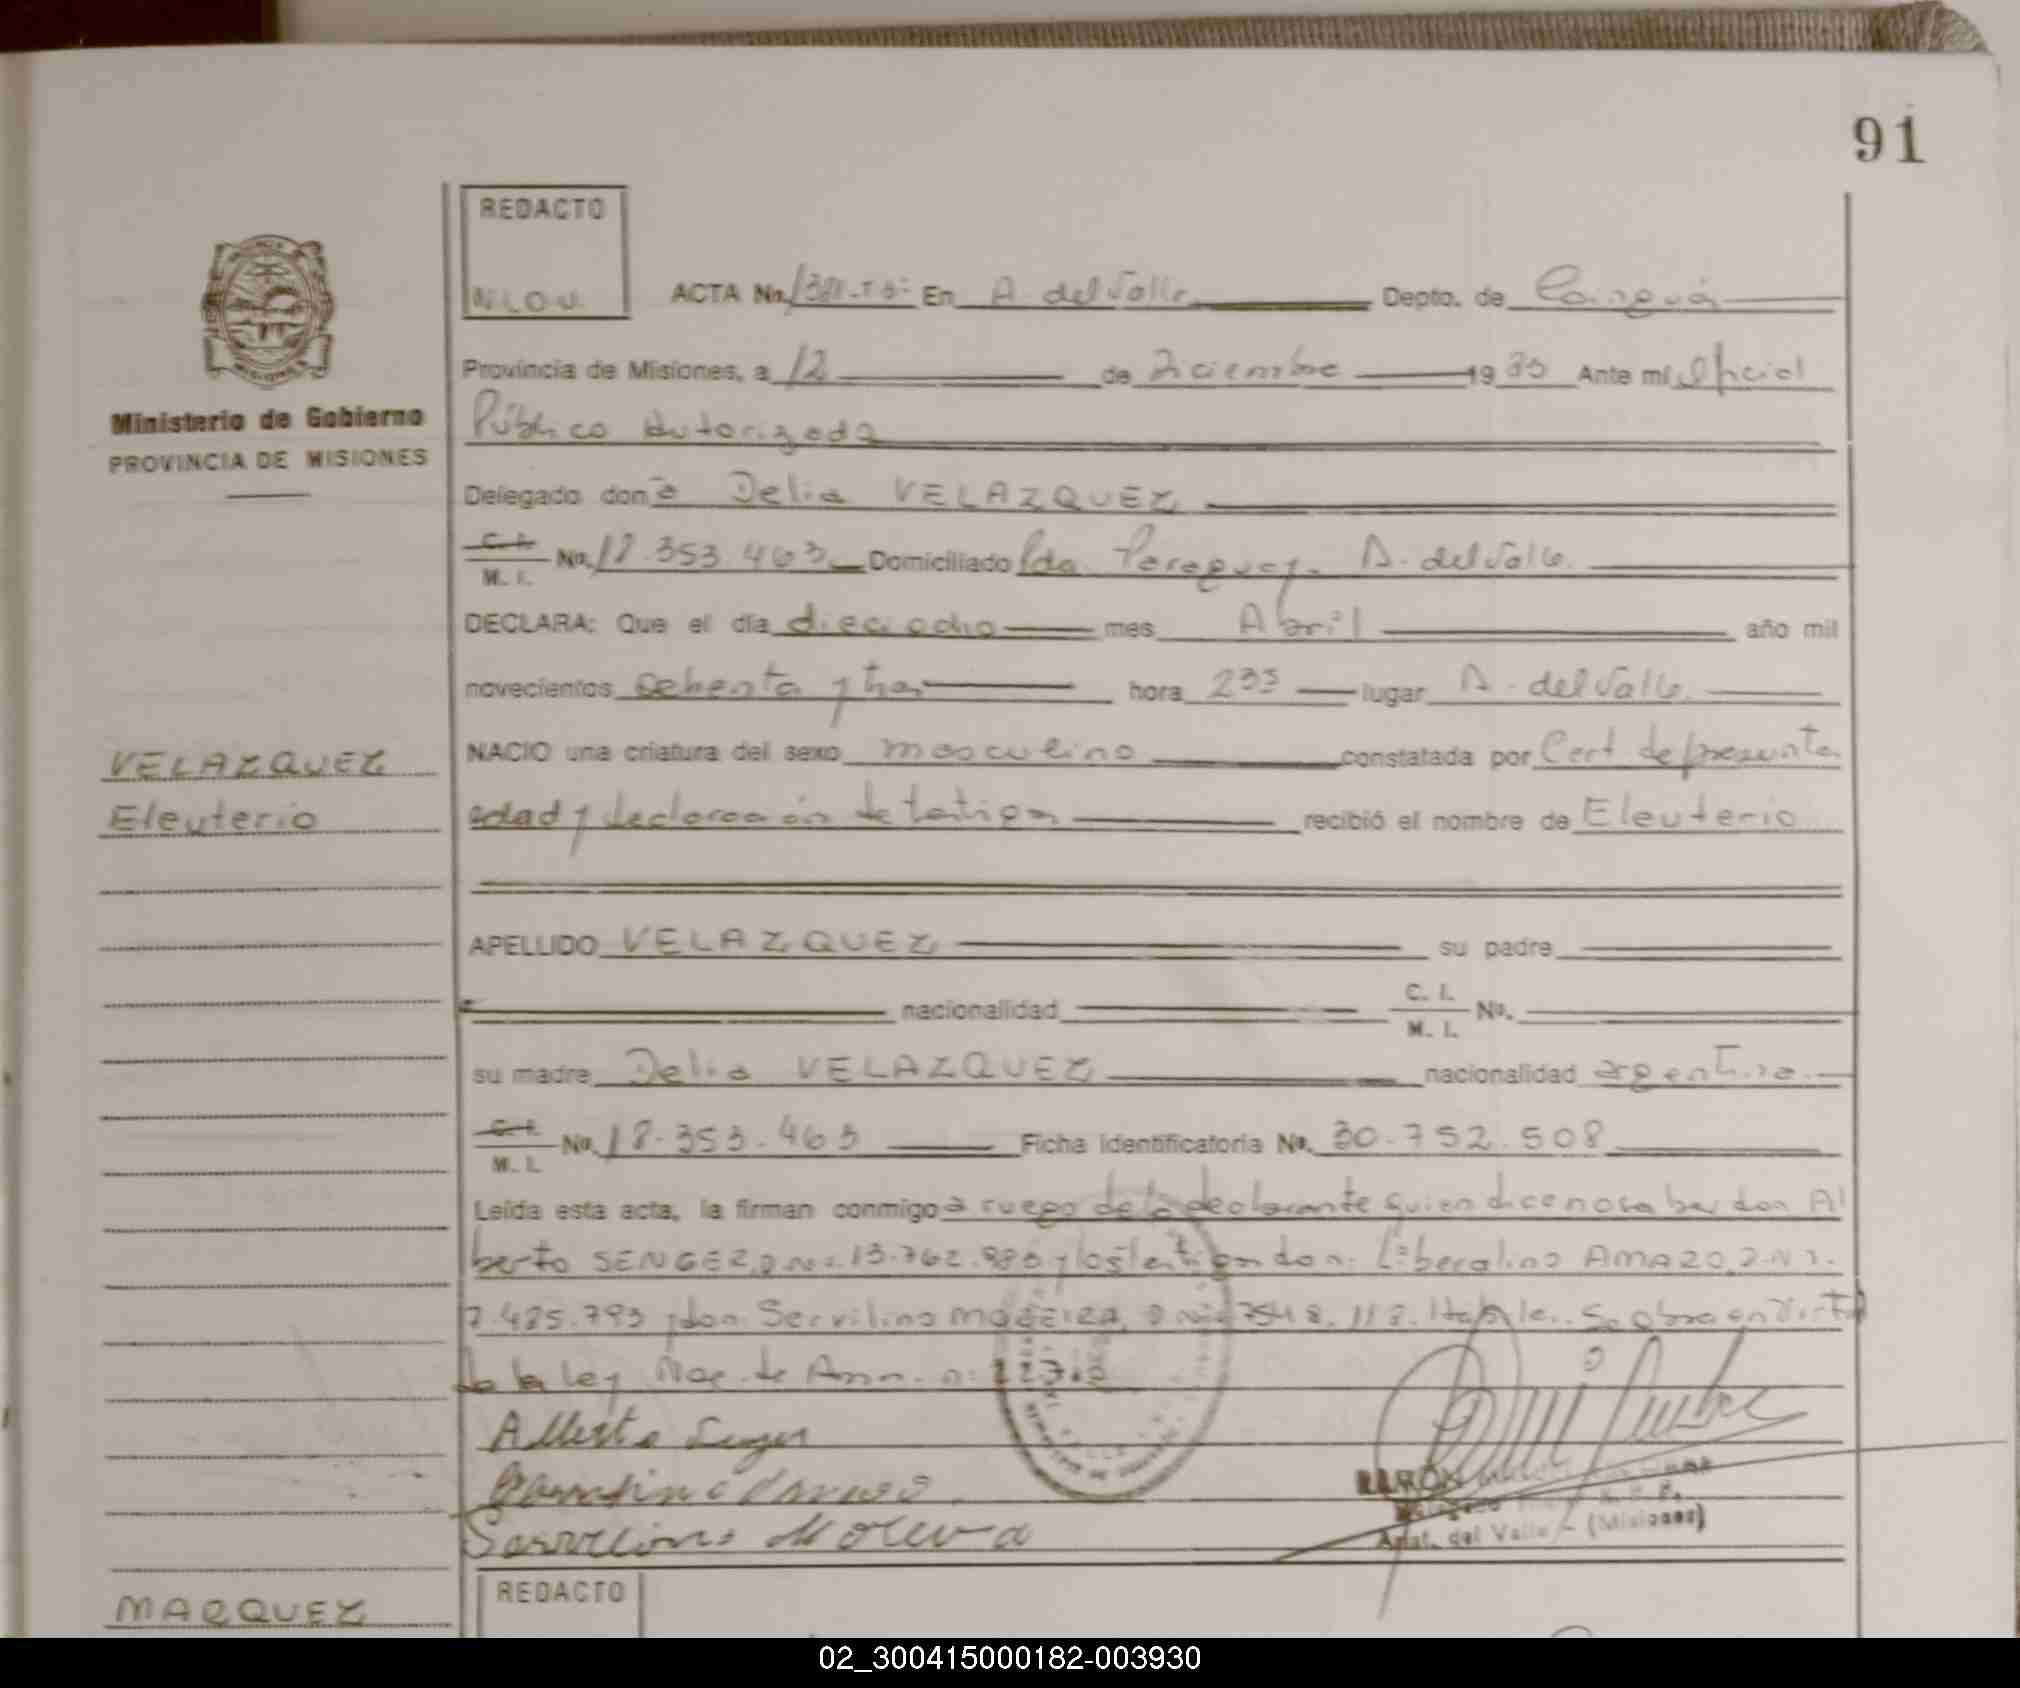 91
REDACTO
ACTA No. En A. del Valle Depto. de Cainguás
Provincia de Misiones, a 12 de Diciembre 19 Ante mi Oficial
Público Autorizado
Ministerio de Gobierno
PROVINCIA DE MISIONES
Delegado don a Delia VELAZQUEZ
C. I.
M. I. No. 18.353.463 Domiciliado Pda. Paraguay. A. del Valle.
DECLARA: Que el día dieciocho mes Abril año mil
novecientos ochenta y tres hora 233 lugar A. del Valle.
VELAZQUEZ
Eleuterio
NACIO una criatura del sexo masculino constatada por Cert de presunta
edad y declaración de testigos recibió el nombre de Eleuterio
APELLIDO VELAZQUEZ su padre
nacionalidad C. I.
M. I. No.
su madre Delia VELAZQUEZ nacionalidad argentina.
C. I.
M. I. No. 18.353.463 Ficha Identificatoria No. 30.752.508
Leída esta acta, la firman conmigo a ruego de la declarante quien dice no saber don Al
berto SENGER, y los testigos don. AMARO, D.N.I.
7.485.793 y don Servilino
de la ley Nac. de Amn. n: 22
Alberto
Servilino
Apst. del Valle - (Misiones)
MARQUEZ
REDACTO
02_300415000182-003930